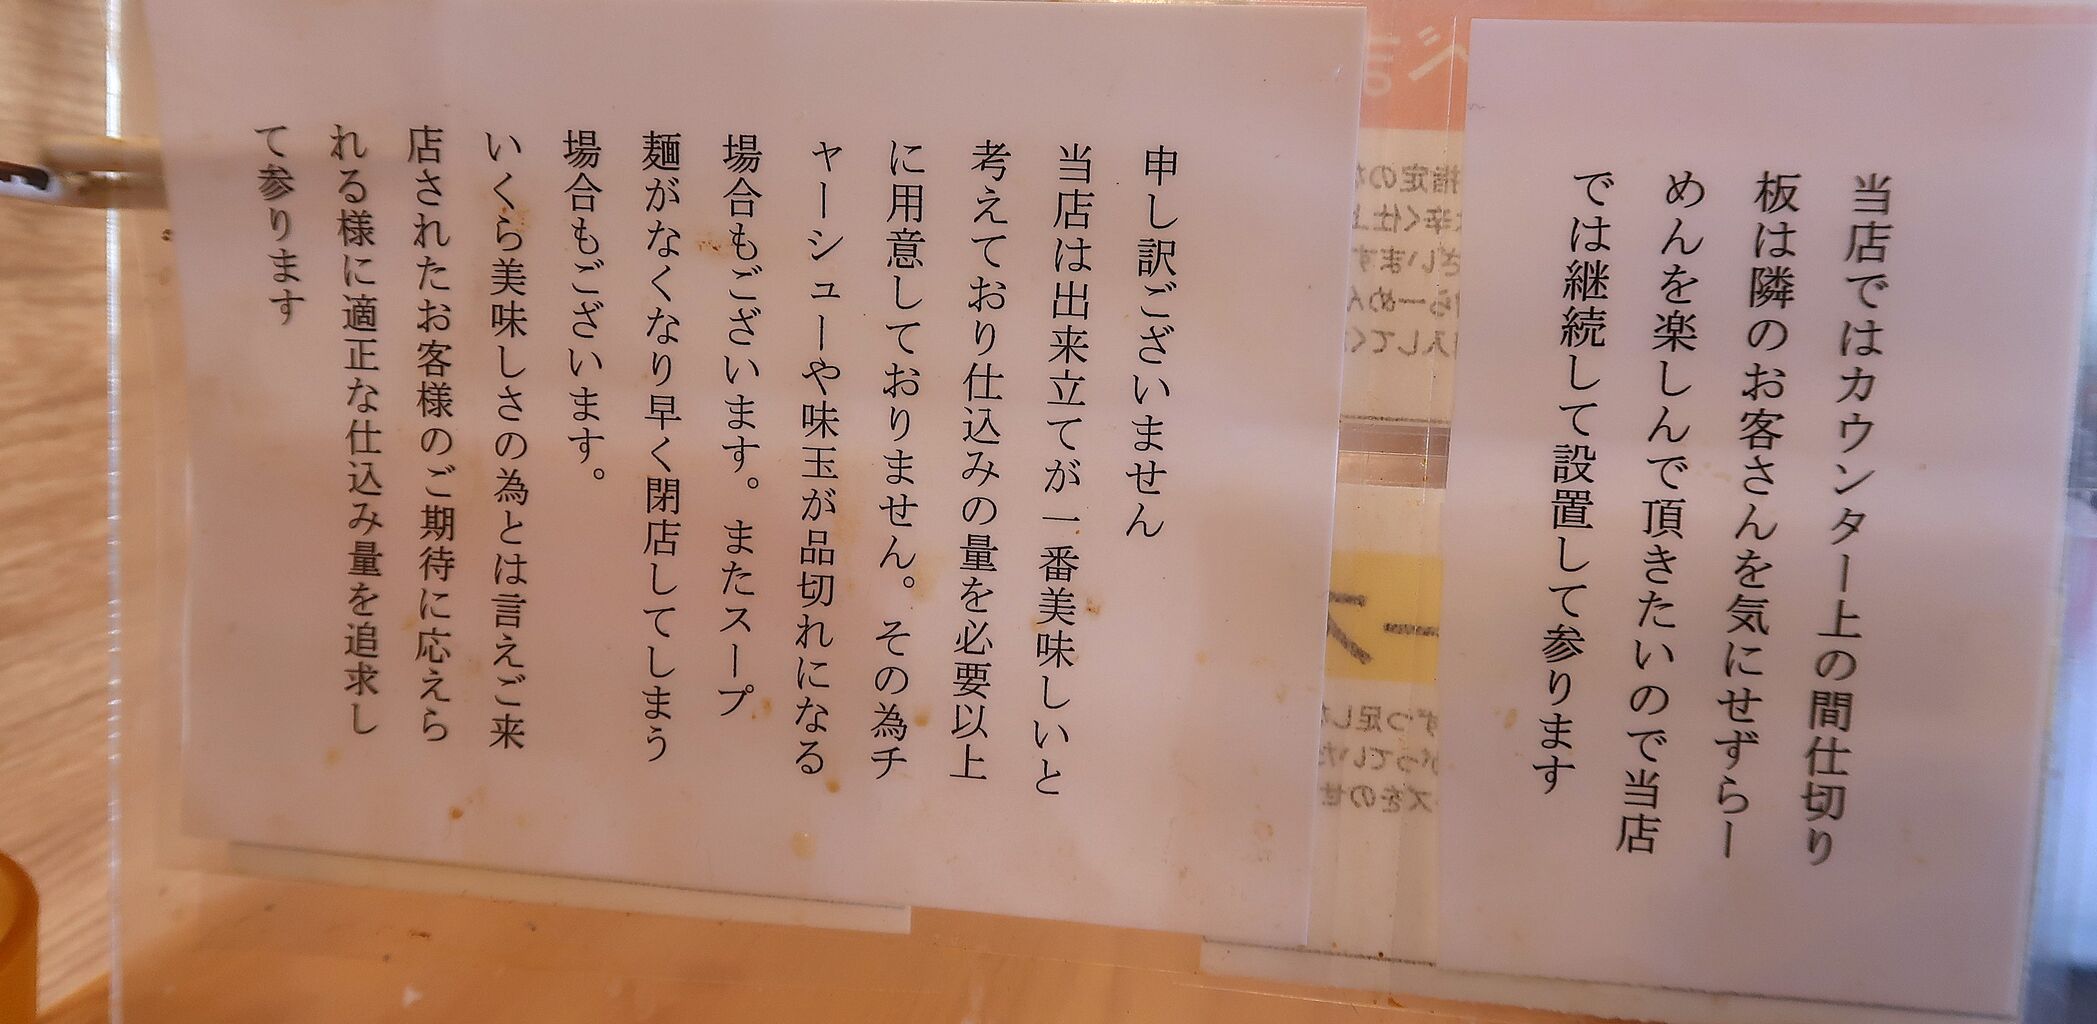 当店ではカウンター上の間仕切り
板は隣のお客さんを気にせずらー
めんを楽しんで頂きたいので当店
では継続して設置して参ります
申し訳ございません
当店は出来立てが一番美味しいと
考えており仕込みの量を必要以上
に用意しておりません。その為チ
ャーシューや味玉が品切れになる
場合もございます。またスープ
麺がなくなり早く閉店してしまう
場合もございます。
いくら美味しさの為とは言えご来
店されたお客様のご期待に応えら
れる様に適正な仕込み量を追求し
て参ります
指定の
辛く仕上
ざいます
らーめん
入してく
ース
ずつ足し
がってい
ズをのせ